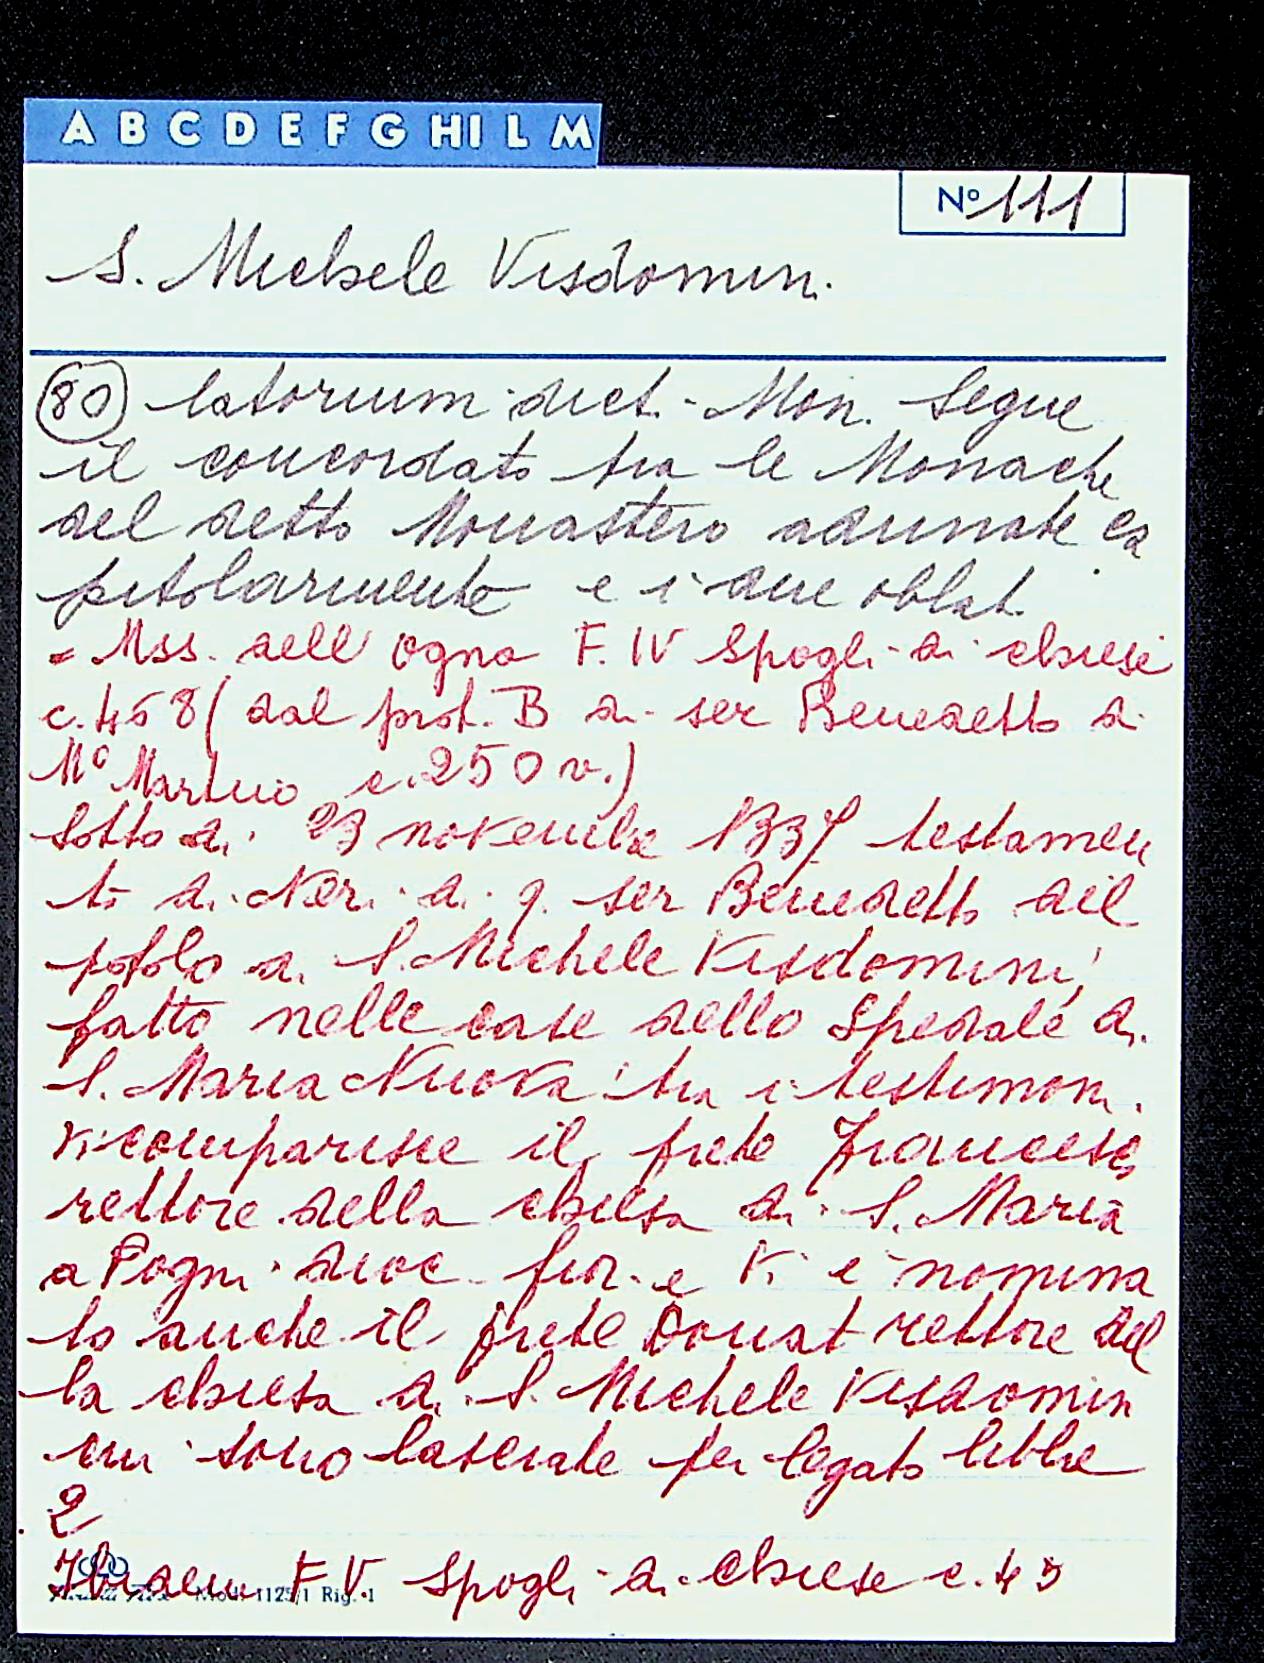 A B C D E F G HI L M
Nº 111
S. Michele Visdomini
80 latorum dict. Mon. Segue
il concordato tra le Monache
del detto Monastero adunate ca
pitolarmente e i due oblati
= Mss. dell'Ogna F. IV Spogli di chiese
c. 458 (dal prot. B di ser Benedetto di
Mº Martino c. 250 v.)
Sotto di 23 novembre 1337 testamen
to di Neri di q. ser Benedetto del
popolo di S. Michele Visdomini,
fatto nelle case dello Spedale di
S. Maria Nuova: tra i testimoni
vi comparisce il prete Francesco
rettore della chiesa di S. Maria
a Pogni dioc. fior. e vi è nomina
to anche il prete Donat rettore del
la chiesa di S. Michele Visdomin
cui sono lasciate per legato libbre
2
Ibidem F. V. Spogli di chiese c. 45
Mod. 1125/1 Rig. 1